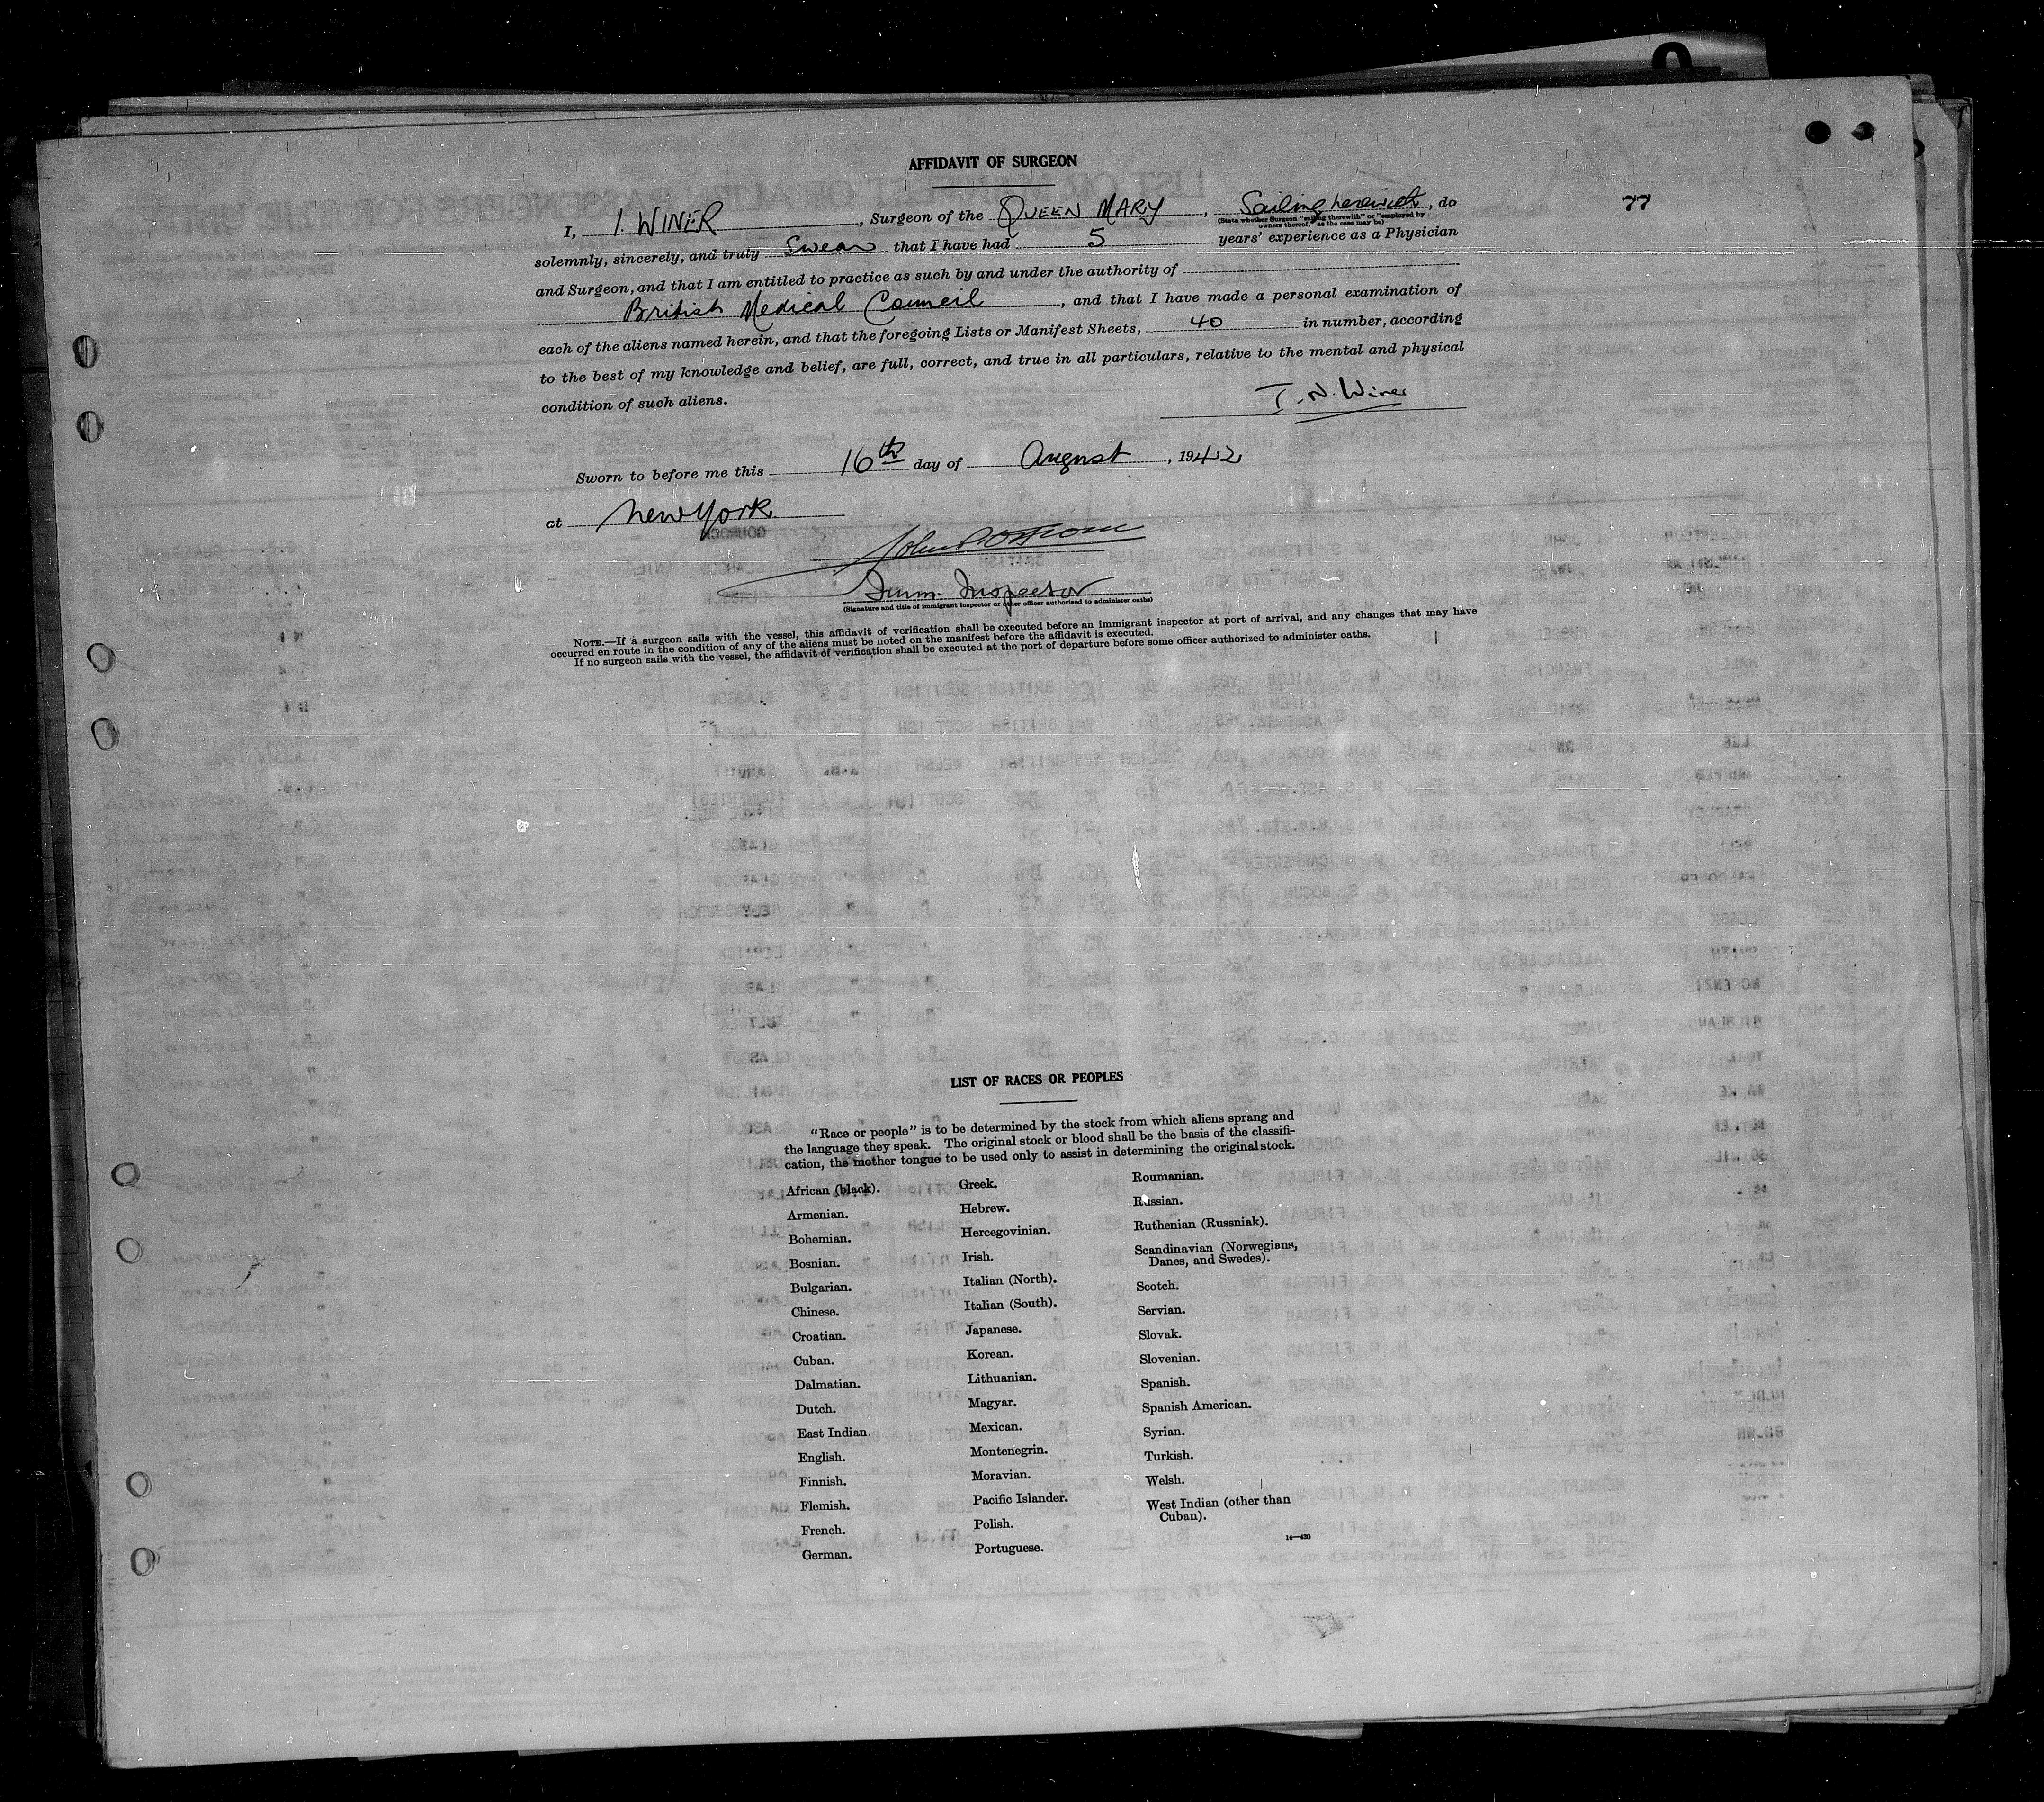 AFFIDAVIT OF SURGEON
77
I, I. WINER, Surgeon of the QUEEN MARY, Sailing herewith, do
(State whether Surgeon "sailing therewith" or "employed by
owners thereof," as the case may be)
solemnly, sincerely, and truly Swear that I have had 5 years' experience as a Physician
and Surgeon, and that I am entitled to practice as such by and under the authority of
British Medical Council, and that I have made a personal examination of
each of the aliens named herein, and that the foregoing Lists or Manifest Sheets, 40 in number, according
to the best of my knowledge and belief, are full, correct, and true in all particulars, relative to the mental and physical
condition of such aliens.
I. N. Winer
Sworn to before me this 16th day of August, 1942
at New York
Imm. Inspector
(Signature and title of immigrant inspector or other officer authorized to administer oaths)
NOTE.—If a surgeon sails with the vessel, this affidavit of verification shall be executed before an immigrant inspector at port of arrival, and any changes that may have
occurred en route in the condition of any of the aliens must be noted on the manifest before the affidavit is executed.
If no surgeon sails with the vessel, the affidavit of verification shall be executed at the port of departure before some officer authorized to administer oaths.
LIST OF RACES OR PEOPLES
"Race or people" is to be determined by the stock from which aliens sprang and
the language they speak. The original stock or blood shall be the basis of the classifi-
cation, the mother tongue to be used only to assist in determining the original stock.
African (black).
Armenian.
Bohemian.
Bosnian.
Bulgarian.
Chinese.
Croatian.
Cuban.
Dalmatian.
Dutch.
East Indian.
English.
Finnish.
Flemish.
French.
German.
Greek.
Hebrew.
Hercegovinian.
Irish.
Italian (North).
Italian (South).
Japanese.
Korean.
Lithuanian.
Magyar.
Mexican.
Montenegrin.
Moravian.
Pacific Islander.
Polish.
Portuguese.
Roumanian.
Russian.
Ruthenian (Russniak).
Scandinavian (Norwegians,
Danes, and Swedes).
Scotch.
Servian.
Slovak.
Slovenian.
Spanish.
Spanish American.
Syrian.
Turkish.
Welsh.
West Indian (other than
Cuban).
14—430